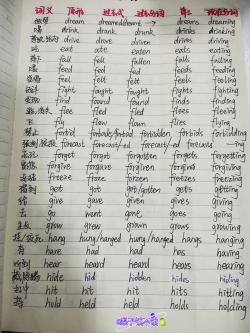 词义 原形 过去式 过去分词 单三 现在分词
做梦 dream dreamed/dreamt → dreams dreaming
喝 drink drank drunk drinks drinking
drive drove driven drives driving
吃 eat ate eaten eats eating
落下 fall fell fallen falls falling
喂 feed fed fed feeds feeding
感觉 feel felt felt feels feeling
战斗 fight fought fought fights fighting
发现 find found found finds finding
flee fled fled flees fleeing
飞 fly flew flown flies flying
禁止 forbid forbade/forbad forbidden forbids forbidding
forecast forecast/ed forecast/ed forecasts —ing
忘记 forget forgot forgotten forgets forgetting
原谅 forgive forgave forgiven forgives forgiving
freeze froze frozen freezes freezing
得到 get got got/gotten gets getting
给 give gave given gives giving
去 go went gone goes going
生长 grow grew grown grows growing
hang hung/hanged hung/hanged hangs hanging
有 have had had has having
听到 hear heard heard hears hearing
hide hid hidden hides hiding
击中 hit hit hit hits hitting
hold held held holds holding